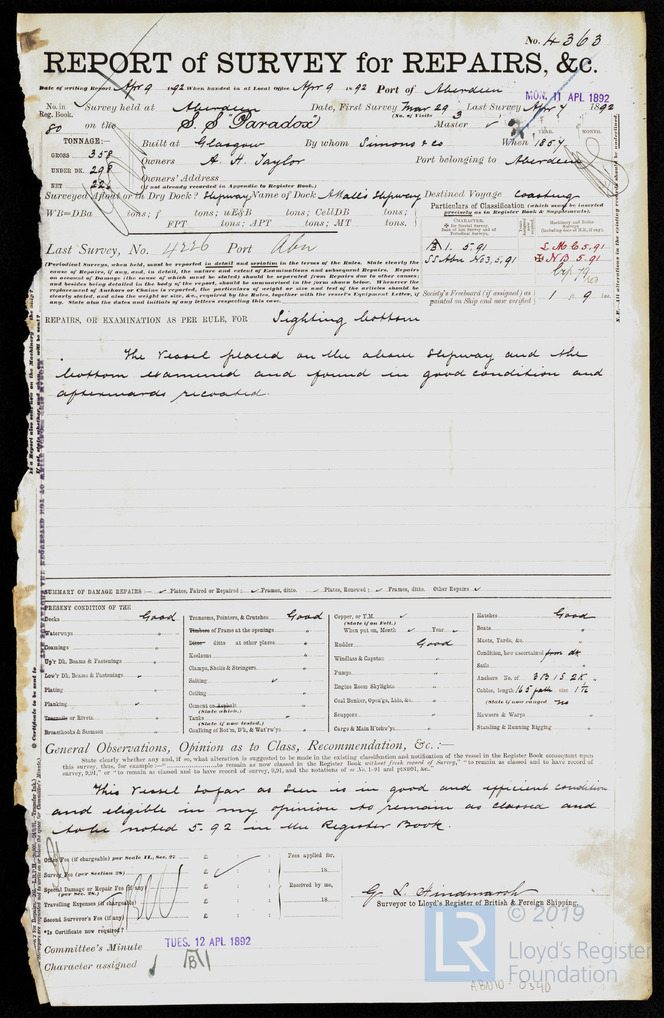 No. 4363
REPORT of SURVEY for REPAIRS, &c.
Date of writing Report Apr 9 1892 When handed in at Local Office Apr 9 1892 Port of Aberdeen
MON. 11 APL 1892
No. in Reg. Book. Survey held at Aberdeen Date, First Survey Mar 29 Last Survey Apr 7 1892
(No. of Visits 3
80 on the S.S "Paradox" Master
TONNAGE:— Built at Glasgow By whom Simons & Co When 1857
YEAR. MONTH.
GROSS 358 Owners A. H. Taylor Port belonging to Aberdeen
UNDER DK. 298 Owners' Address
NET (If not already recorded in Appendix to Register Book.)
Surveyed Afloat or in Dry Dock? Slipway Name of Dock A Hall's Slipway Destined Voyage Coasting
WB=DBa tons; f tons; uE&B tons; CellDB tons;
FPT tons; APT tons; MT tons.
Particulars of Classification (which must be inserted precisely as in Register Book & Supplements).
Last Survey, No. 4226 Port Abn
(Periodical Surveys, when held, must be reported in detail and seriatim in the terms of the Rules. State clearly the
cause of Repairs, if any, and, in detail, the nature and extent of Examinations and subsequent Repairs. Repairs
on account of Damage (the cause of which must be stated) should be separated from Repairs due to other causes;
and besides being detailed in the body of the report, should be summarised in the form shown below. Whenever the
replacement of Anchors or Chains is reported, the particulars of weight or size and test of the articles should be
clearly stated, and also the weight or size, &c., required by the Rules, together with the vessel's Equipment Letter, if
any. State also the dates and initials of any letters respecting this case.)
CHARACTER.
Machinery and Boiler Surveys
1. 5.91
L M C 5.91
SS Abn No3, 5, 91
N B 5.91
Society's Freeboard (if assigned) as painted on Ship and now verified 1 9
REPAIRS, OR EXAMINATION AS PER RULE, FOR Sighting bottom
The Vessel placed on the above Slipway and the
bottom examined and found in good condition and
afterwards recoated.
SUMMARY OF DAMAGE REPAIRS — Plates, Faired or Repaired; Frames, ditto. Plates, Renewed; Frames, ditto. Other Repairs
PRESENT CONDITION OF THE
Decks Good
Waterways "
Coamings "
Up'r Dk. Beams & Fastenings "
Low'r Dk. Beams & Fastenings
Plating "
Planking
Treenails or Rivets
Breasthooks & Stemson
Transoms, Pointers, & Crutches Good
Timbers of Frame at the openings "
Ditto ditto at other places "
Keelsons "
Clamps, Shelfs & Stringers
Salting
Ceiling
Cement or Asphalt (State which.)
Tanks (State if now tested.)
Caulking of Bot'm, D'k, & Wat'rw'ys
Copper, or Y.M. (State if on Felt.)
When put on, Month Year
Rudder Good
Windlass & Capstan "
Pumps
Engine Room Skylights
Coal Bunker, Open'gs, Lids, &c.
Scuppers
Cargo & Main H'tchw'ys
Hatches Good
Boats "
Masts, Yards, &c. "
Condition, how ascertained from dk
Sails
Anchors No. of 3 B 1 S 2 K
Cables, length 165 fath size 1 7/16
(State if now ranged no
Hawsers & Warps "
Standing & Running Rigging "
General Observations, Opinion as to Class, Recommendation, &c.:—
State clearly whether any, and if so, what alteration is suggested to be made in the existing classification and notification of the vessel in the Register Book consequent upon
this survey, thus, for example:— "to remain as now classed in the Register Book without fresh record of Survey," "to remain as classed and to have record of
survey, 9,91," or "to remain as classed and to have record of survey, 9,91, and the notations of
This Vessel so far as Seen is in good and efficient condition
and eligible in my opinion to remain as classed and
to be noted 5.92 in the Register Book.
Other Fee (if chargeable) per Scale II., Sec. 27 £ : :
Survey Fee (per Section 28) £ : :
Special Damage or Repair Fee (if any) (per Sec. 28.) £ : :
Travelling Expenses (if chargeable) £ : :
Second Surveyor's Fee (if any) £ : :
Fees applied for, 18
Received by me, 18
*Is Certificate now required?
G. L. Hindmarsh
Surveyor to Lloyd's Register of British & Foreign Shipping.
Committee's Minute TUES. 12 APL 1892
Character assigned
LR © 2019
Lloyd's Register
Foundation
ABN10 0340